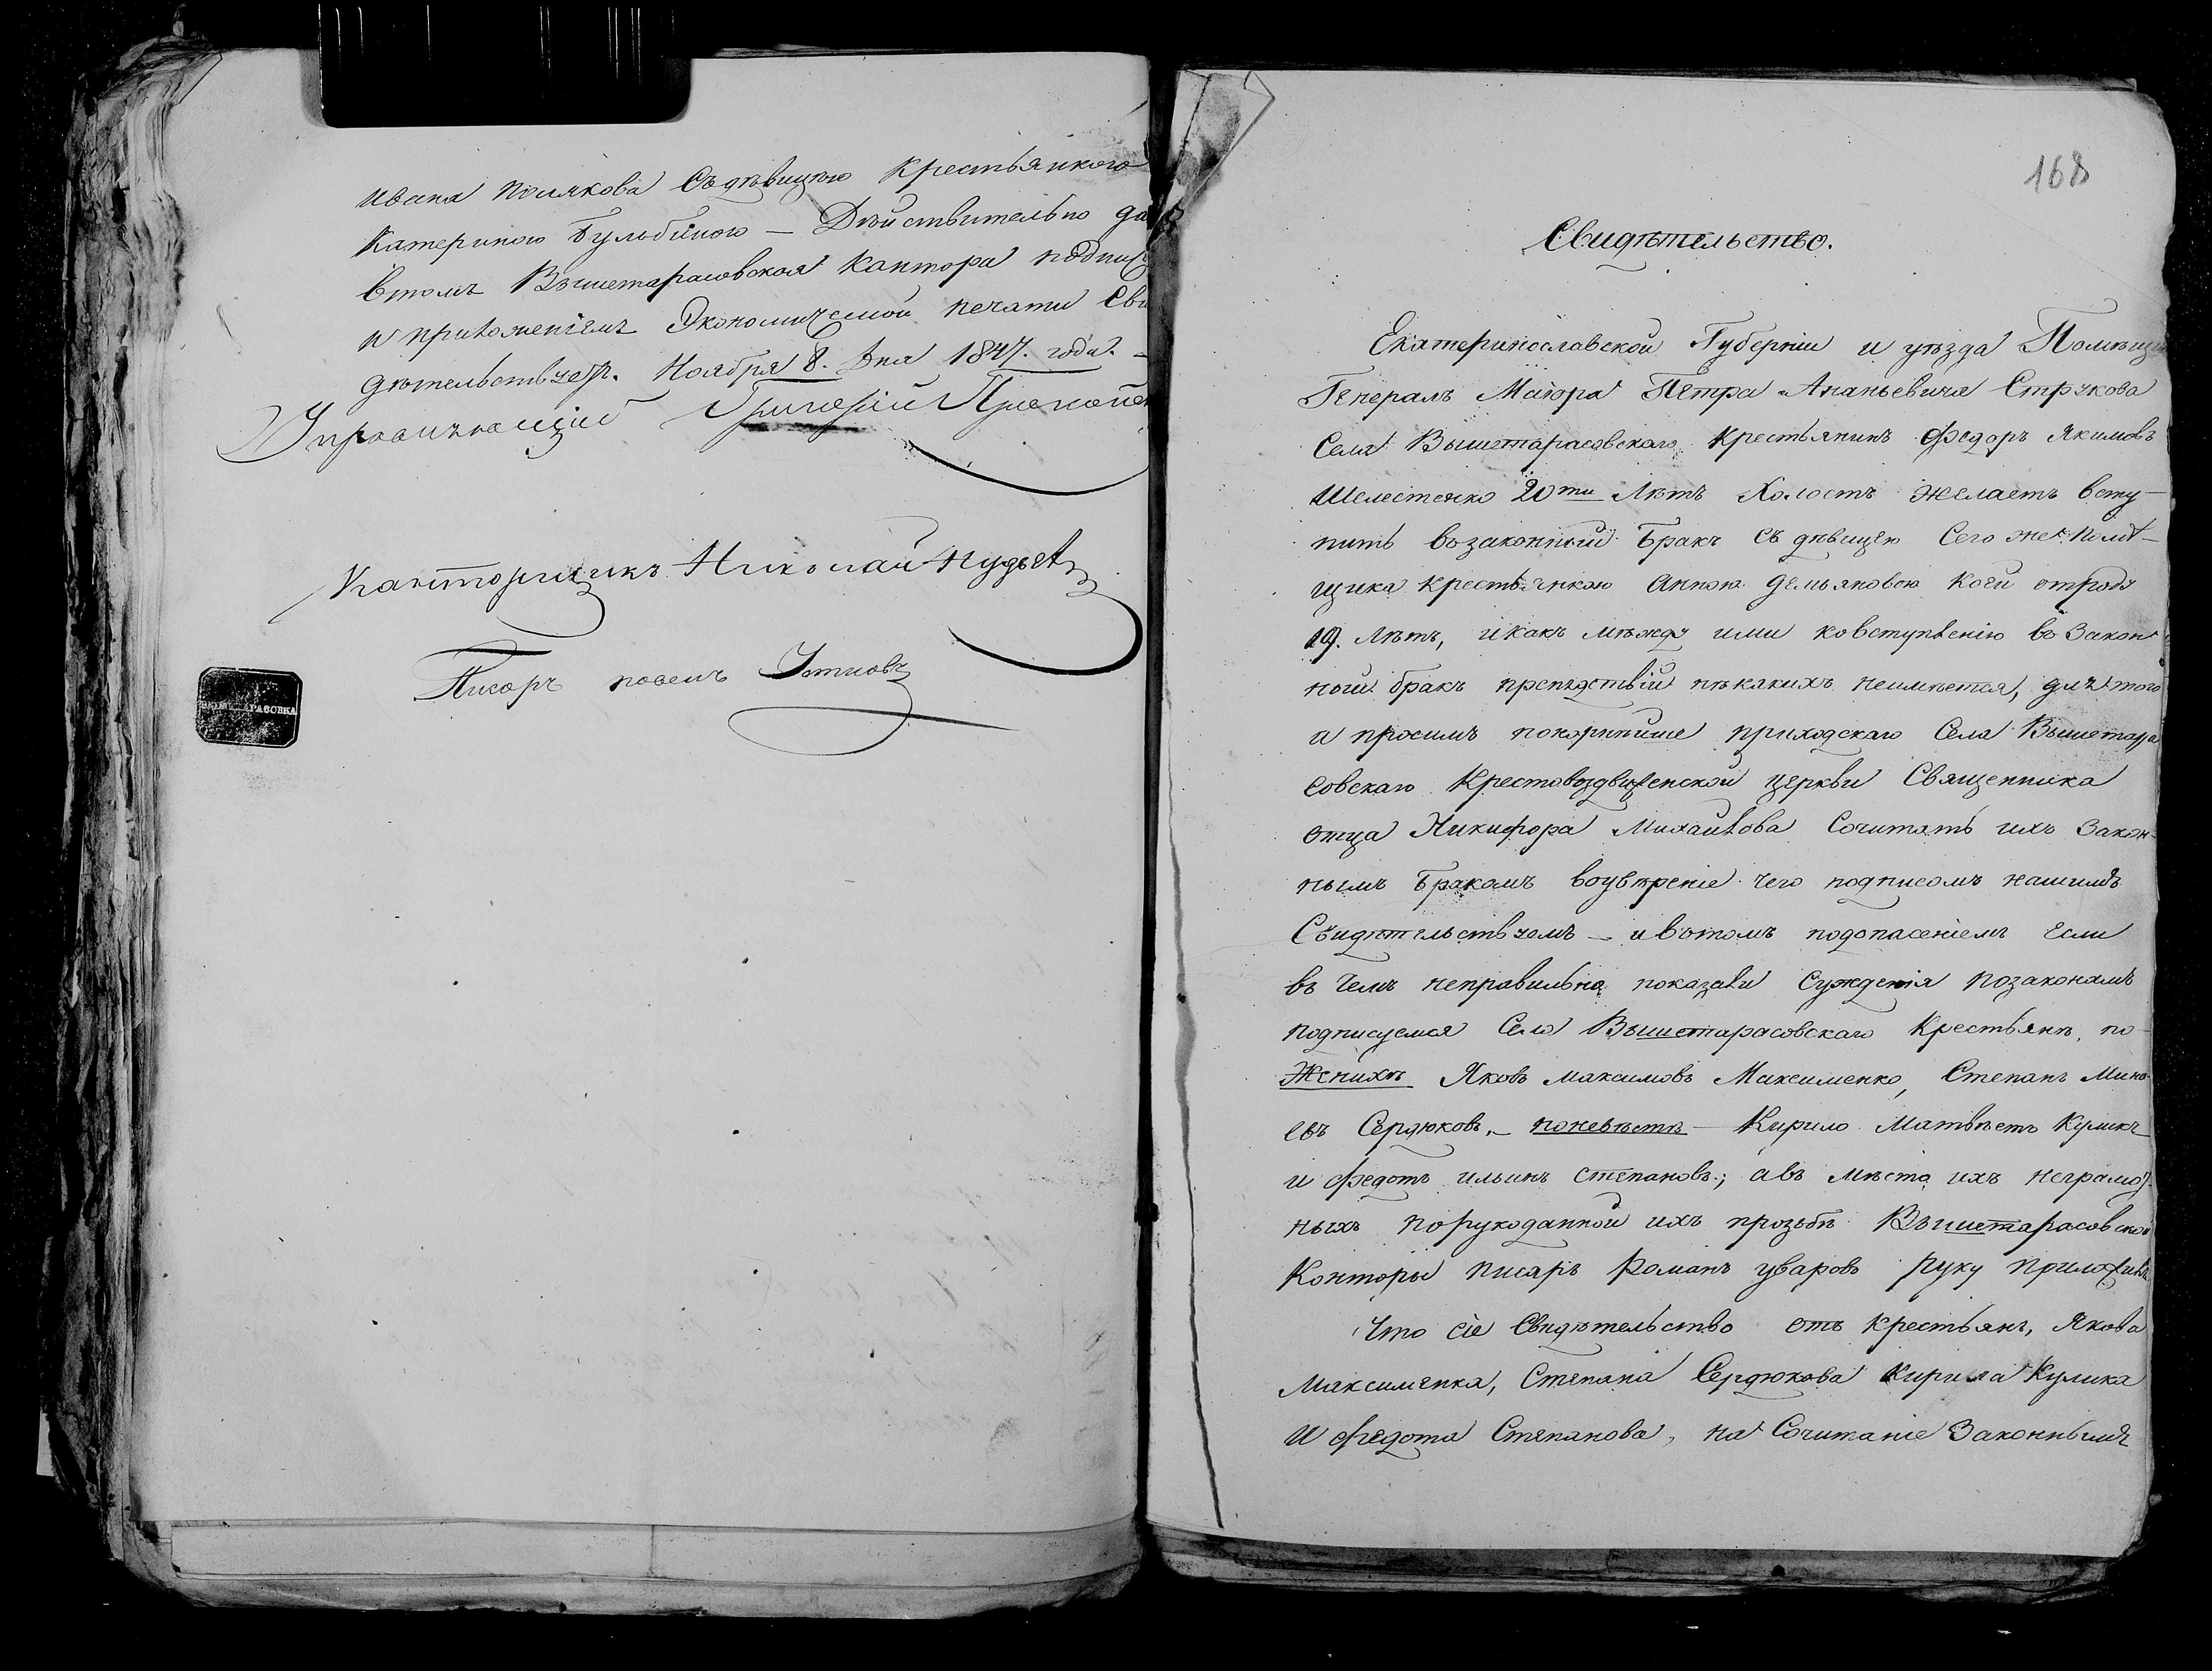 Ивана Полякова Съдѣвицею Крестьянкою
Катериною Бульбиною — Дѣйствительно да
втомъ Вышетарасовская Кантора подпис
и приложеніемъ Экономической печати Сви
дѣтельствуетъ. Ноября 8. дня 1847. года. —
Управляющій Григорій
Канторщикъ Николай
Писарь
168
Свидѣтельство.
Екатеринославской Губерніи и уѣзда Помѣщи
Генералъ Маіора Петра Ананьевича Струкова
Села Вышетарасовскаго Крестьянинъ Федоръ Якимовъ
Шелестенко 20ти Лѣтъ Холостъ желаетъ всту-
пить возаконный Бракъ съ дѣвицею Сего же Помѣ-
щика крестьянкою Анною Демьяновою коей отроду
19. Лѣтъ, икакъ между ими ковступленію въ Закон
ной бракъ препядствій нѣкакихъ неимѣется, для того
а просимъ покорнѣйше приходскаго Села Вышетара
совскаго Крестовоздвиженской церкви Священника
отца Никифора Михайлова Сочитать ихъ Закон-
нымъ Бракомъ воувѣреніе чего подписомъ нашимъ
Свидѣтельствуемъ — ивътомъ подопасеніемъ если
въ чемъ неправильно показали Сужденія позаконамъ
подписуемся Села Вышетарасовскаго Крестьяне, по-
Женихѣ Яковъ Максимовъ Максименко, Степанъ Мино-
евъ Сердюковъ, — поневѣстѣ — Кирило Матвѣевъ Куликъ
и Федотъ ильинъ Степановъ; авъ мѣсто ихъ неграмот-
ныхъ порукоданной ихъ прозьбѣ Вышетарасовской
Конторы писарь Романъ уваровъ руку приложилъ
Что сіе Свидѣтельство отъ крестьянъ, Якова
Максименка, Степана Сердюкова Кирила Кулика
и Федота Степанова, на Сочитаніе Законнымъ